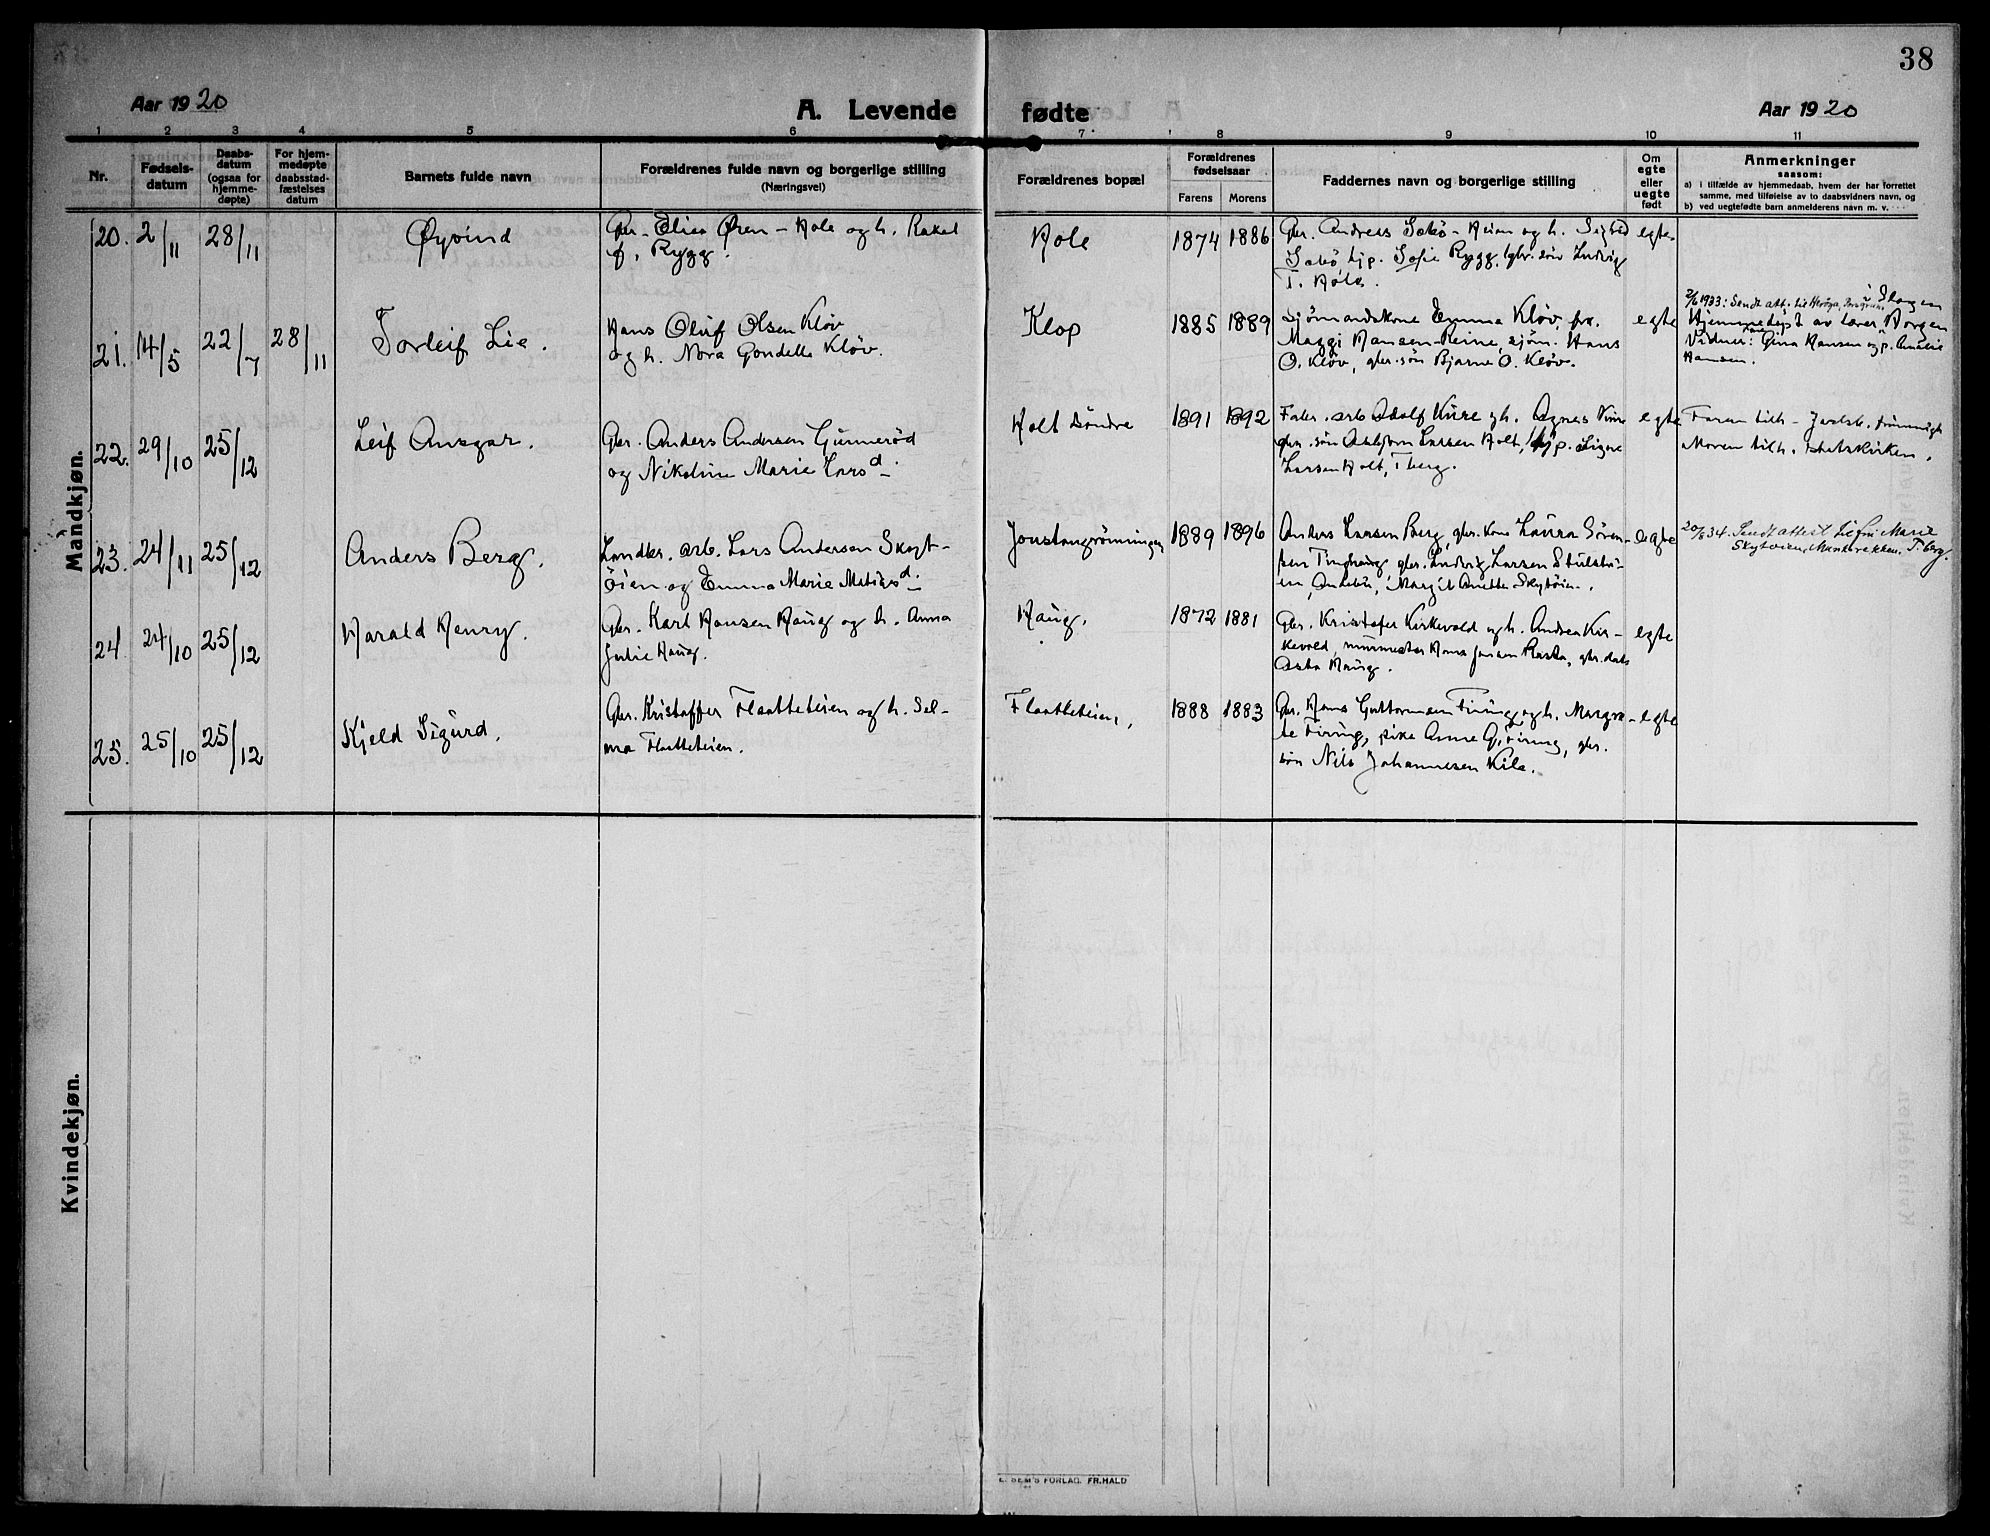 38
Aar 1920
A. Levende fødte
Aar 1920
1 2 3 4 5 6 7 8 9 10 11
Nr.
Fødsels-
datum
Daabs-
datum
(ogsaa for
hjemme-
døpte)
For hjem-
medøpte
daabsstad-
fæstelses
datum
Barnets fulde navn
Forældrenes fulde navn og borgerlige stilling
(Næringsvei)
Forældrenes bopæl
Forældrenes
fødselsaar
Farens Morens
Faddernes navn og borgerlige stilling
Om
egte
eller
uegte
født
Anmerkninger
saasom:
a) i tilfælde av hjemmedaab, hvem der har forrettet
samme, med tilføielse av to daabsvidners navn, og
b) ved uegtefødte barn anmelderens navn m. v.
Mandkjøn.
20. 2/11 28/11 Øyvind
Gbr. Elias Øren - Hole og h. Rakel
f. Rygg.
Hole 1874 1886
Gbr. Andreas Sebø - Auen og h. Sigrid
Sebø, hjp. Sofie Rygg, gbr. søn Ludvig
T. Hole.
egte.
21. 14/5 22/7 28/11 Torleif Lie.
Hans Oluf Olsen Kløv
og h. Nora Gondelle Kløv.
Klop 1885 1889
Sjømandskone Emma Kløv, frk.
Maggi Hansen-Reine, sjøm. Hans
O. Kløv, gbr. søn Bjarne O. Kløv.
egte
2/6 1933: Sendt att. til Herøya,
i Slagen
Hjemmedøpt av lærer Borgen
Vidner: Gina Hansen og p. Amalie
Hansen.
22. 29/10 25/12 Leif Ansgar.
Gbr. Anders Andersen Gunnerød
og Nikoline Marie Larsd.
Holt søndre 1891 1892
Fabr. arb. Adolf Kure og h. Agnes Kure
gbr. søn Asbjørn Larsen Holt, hjp. Signe
Larsen Holt, Tberg.
egte
Faren tilh. Jarlsb. frimenigh.
Moren tilh. statskirken.
23. 24/11 25/12 Anders Berg.
Landbr. arb. Lars Andersen Skyt-
øien og Emma Marie Mathisd.
Jonstangrønningen 1889 1896
Anders Larsen Berg, gbr. kone Laura Søren-
sen Tinghaug gbr. Ludvig Larsen Stulstu-
en, Andebu, Margit Anette Skytøien.
egte
20/8 34. Sendt attest til fru Marie
Skytøien, Munkerekken, T.berg.
24. 24/10 25/12 Harald Henry.
Gbr. Karl Hansen Haug og h. Anna
Julie Haug.
Haug. 1872 1881
Gbr. Kristofer Kirkevold og h. Andrea Kir-
kevold, murmester Hans Jensen Rasta, gbr. dat.
Asta Haug.
egte
25. 25/10 25/12 Kjeld Sigurd.
Gbr. Kristoffer Flaatteteien og h. Sel-
ma Flaatteteien.
Flaatteteien, 1888 1883
Gbr. Hans Guttormsen Firing og h. Margre-
te Firing, pike Anne G. Firing, gbr.
søn Nils Johannesen Kile.
egte
Kvindekjøn.
E. SEM'S FORLAG. FR.HALD